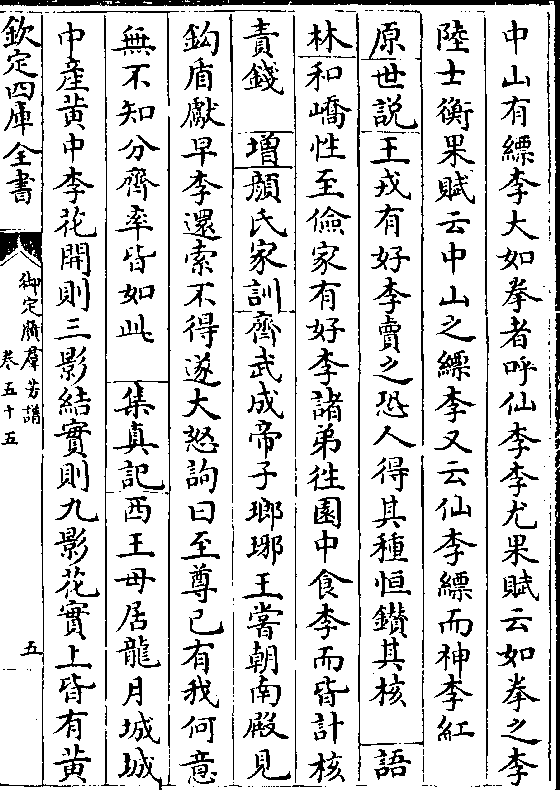 中山有縹李大如拳者呼仙李李尤果賦云如拳之李
陸士衡果賦云中山之縹李又云仙李縹而神李紅
原世說王戎有好李賣之恐人得其種恒鑚其核　語
林和嶠性至儉家有好李諸弟徃園中食李而皆計核
責錢　增顔氏家訓齊武成帝子瑯琊王嘗朝南殿見
鈎盾獻早李還索不得遂大怒詢曰至尊已有我何意
無不知分齊率皆如此　集真記西王母居龍月城城
中產黃中李花開則三影結實則九影花實上皆有黃
欽定四庫全書
御定廣羣芳譜
卷五十五
五